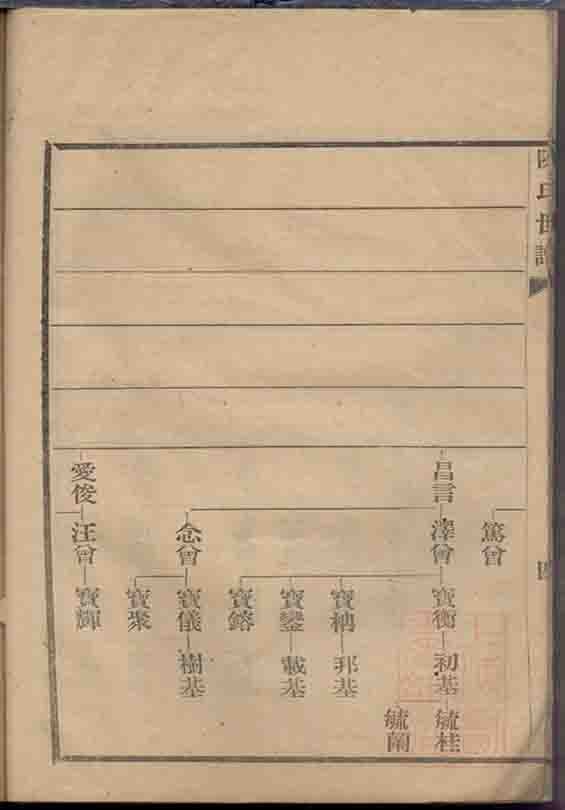 氏世譜
四
篤曾
昌言
澤曾
寶衡
初基
毓桂
毓蘭
寶
邦基
寶鑾
載基
寶鎔
念曾
寶儀
樹基
寶聚
愛俊
汪曾
寶輝